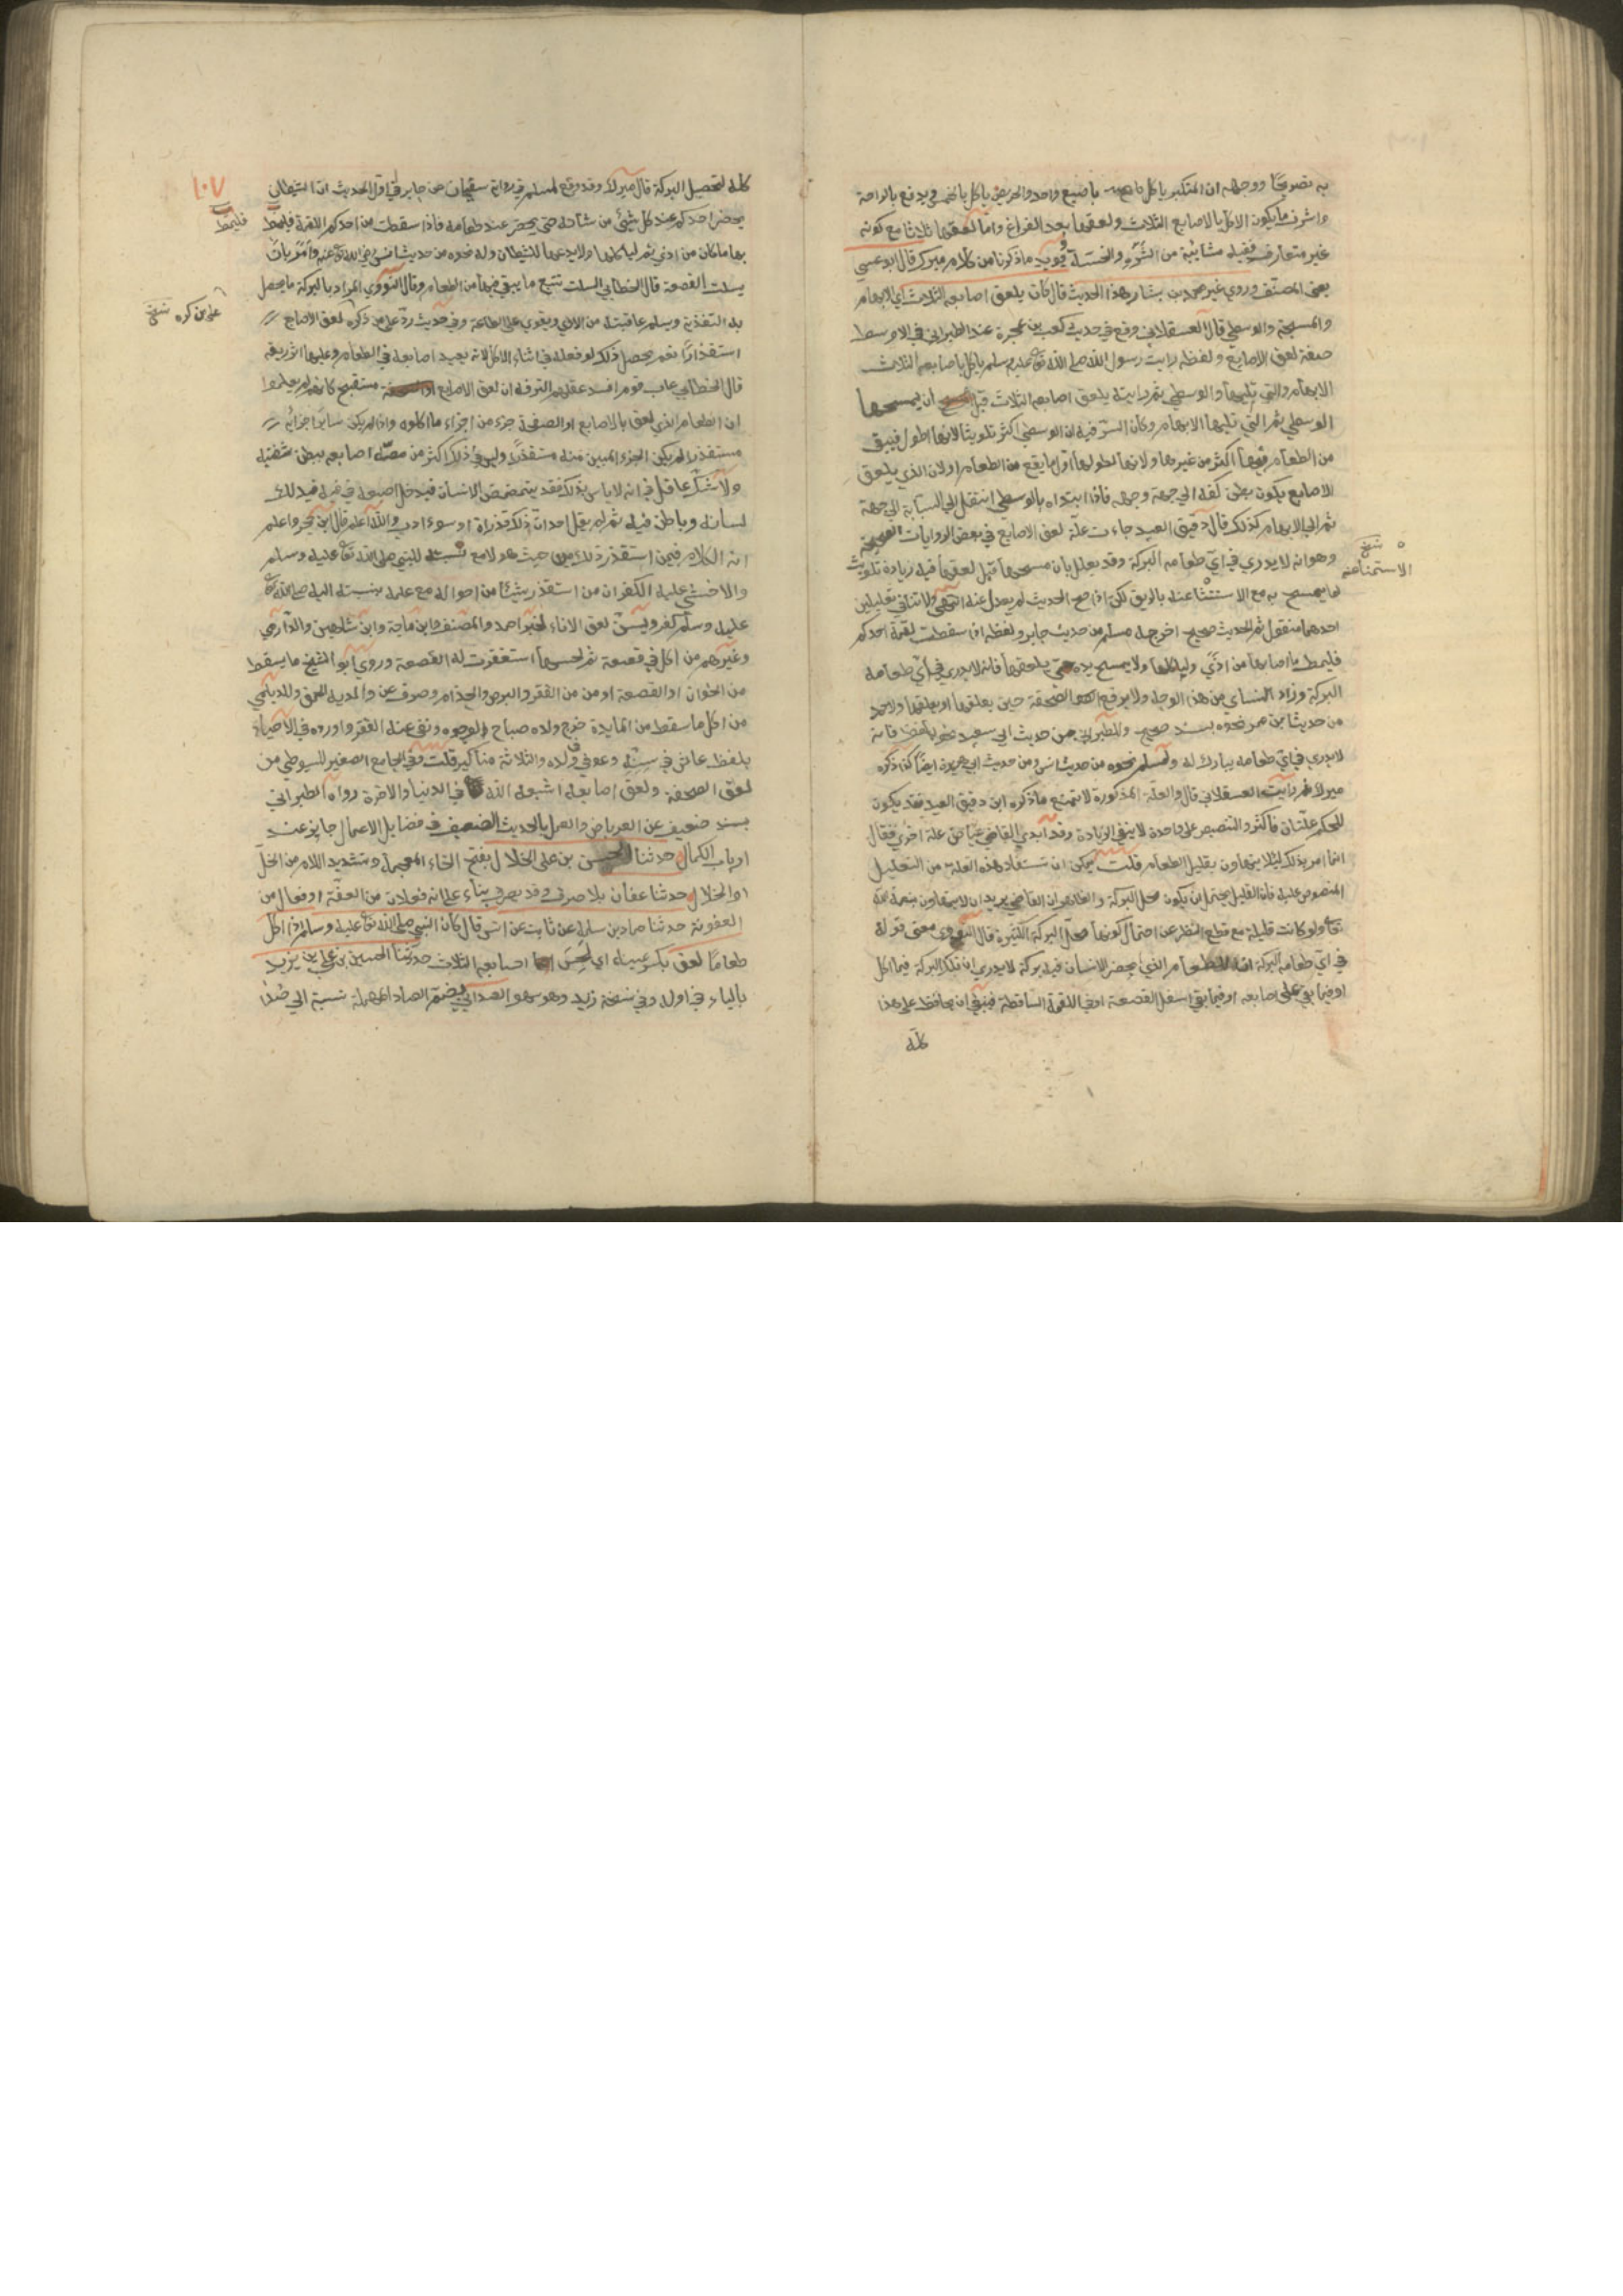 به تصريحا ووجهه ان المتكبر ياكل باصبع واحد والحريص ياكل بالخمس ويدفع بالراحة
واشرف ما يكون الاكل بالاصابع الثلاث ولعقها بعد الفراغ واما لعقها ثلاثا مع كونه
غير متعارف ففيه مشائبة من الشره والخسة ويؤيد ما ذكرنا من كلام ميرك قال ابو عيسى
يعني المصنف وروي غير محمد بن بشار هذا الحديث قال كان يلعق اصابعه الثلاث اي الابهام
والمسبحة والوسطى قال العسقلاني وقع في حديث كعب بن عجرة عند الطبراني في الاوسط
صفة لعق الاصابع ولفظه رايت رسول الله صلى الله تع عليه وسلم ياكل باصابعه الثلاث
الابهام والتي تليها والوسطى ثم رايته يلعق اصابعه الثلاث قبل ان يمسحها
الوسطى ثم التي تليها ثم الابهام وكان السر فيه ان الوسطى اكثر تلويثا لانها اطول فيبقى
من الطعام فيها اكثر من غيرها ولانها لطولها اول ما يقع من الطعام او لان الذي يلعق
الاصابع يكون بطن كفه الى جهة وجهه فاذا ابتداه بالوسطى انتقل الى السبابة الى جهة
ثم الى الابهام كذلك قال دقيق العيد جاءت علة لعق الاصابع في بعض الروايات الصحيحة
وهو انه لا يدري في اي طعامه البركة وقد يعلل بان مسحها قبل لعقها فيه زيادة تلويث
نسخ الاستغناء عنه
لما يمسح به مع الاستغناء عنه بالريق لكن اذا صح الحديث لم يعدل عنه انتهى ولا تنافي تعليلين
احدهما منقول ثم الحديث صحيح اخرجه مسلم من حديث جابر ولفظه اذا سقطت لقمة احدكم
فليمط ما اصابها من اذى ولياكلها ولا يمسح يده حتى يلعقها فانه لا يدري في اي طعامه
البركة وزاد النساي من هذا الوجه ولا يرفع الصحفة حتى يلعقها او يلعقها ولاحمد
من حديث ابن عمر نحوه بسند صحيح وللطبراني من حديث ابي سعيد نحوه بلفظ فانه
لا يدري في اي طعامه يبارك له ولمسلم نحوه من حديث انس ومن حديث ابي هريرة ايضا كذا ذكره
ميرك ثم رايت العسقلاني قال والعلة المذكورة لا تمنع ما ذكره ابن دقيق العيد فقد يكون
للحكم علتان فاكثر والتنصيص على واحدة لا ينفي الزيادة وقد ابدى القاضي عياض علة اخرى فقال
انما امر بذلك لئلا يتهاون بقليل الطعام قلت يمكن ان تستفاد هذه العلة من التعليل
المنصوص عليه فان القليل يحتمل ان يكون محل البركة والظاهر ان القاضي يريد ان لا يتهاون بنعمة الله
تعا ولو كانت قليلة مع قطع النظر عن احتمال كونها محل البركة الكثيرة قال النووي معنى قوله
في اي طعامه البركة ان الطعام الذي يحضر الانسان فيه بركة لا يدري ان تلك البركة فيما اكل
او فيما بقي على اصابعه او فيما بقي اسفل القصعة او في اللقمة الساقطة فينبغي ان يحافظ على هذا
كله
١٠٧
كله لتحصيل البركة قال ميرك وقد وقع لمسلم في رواية سفيان عن جابر في اول الحديث ان الشيطان
يحضر احدكم عند كل شيئ من شانه حتى يحضر عند طعامه فاذا سقطت من احدكم اللقمة فليمط
فليمط
بها ما كان من اذى ثم لياكلها ولا يدعها للشيطان وله نحوه من حديث انس رضي الله تع عنه وامر بان
يسلت القصعة قال الخطابي السلت تتبع ما يبقى فيها من الطعام وقال النووي المراد بالبركة ما يحصل
به التغذية ويسلم عاقبته من الاذى ويقوي على الطاعة وفي حديث رد على من ذكره لعق الاصابع
على من كره نسخ
استقذارا نعم يحصل ذلك لو فعله في اثناء الاكل لانه يعيد اصابعه في الطعام وعليها اثر ريقه
قال الخطابي عاب قوم افسد عقلهم الترفه ان لعق الاصابع مستقبح كانهم لم يعلموا
ان الطعام الذي لعق بالاصابع او الصحفة جزء من اجزاء ما اكلوه واذا لم يكن سائر اجزائه
مستقذرا لم يكن الجزء اليسير منه مستقذرا وليس في ذلك اكثر من مصه اصابعه ببطن شفتيه
ولا يشك عاقل في انه لا باس بذلك فقد يتمضمض الانسان فيدخل اصبعه في فيه فيدلك
لسانه وباطن فيه ثم لم يقل احد ان ذلك قذراة او سوء ادب والله اعلم قال ابن حجر واعلم
ان الكلام فيمن استقذر ذلك من حيث هو لا مع نسبته للنبي صلى الله تعا عليه وسلم
والا خشي عليه الكفر ان من استقذر شيئا من احواله مع علمه بنسبته اليه صلى الله تعا
عليه وسلم كفر ويسن لعق الاناء لخبر احمد والمصنف وابن ماجة وابن شاهين والدارمي
وغيرهم من اكل في قصعة ثم لحسها استغفرت له القصعة وروى ابو الشيخ ما يسقط
من الخوان او القصعة امن من الفقر والبرص والجذام وصرف عن ولده الحمق وللديلمي
من اكل ما سقط من المايدة خرج ولده صباح الوجوه ونفى عنه الفقر واورده في الاحياء
بلفظ عاش في سعة وعوفي في ولده والثلاثة مناكير قلت وفي الجامع الصغير للسيوطي من
لعق الصحفة ولعق اصابعه اشبعه الله في الدنيا والاخرة رواه الطبراني
بسند ضعيف عن العرباض والعمل بالحديث الضعيف في فضايل الاعمال جايز عند
ارباب الكمال حدثنا الحسن بن على الخلال بفتح الخاء المعجمة وتشديد اللام من الخل
او الخلال حدثنا عفان بلا صرف وقد يصرف بناء على انه فعلان من العفة او فعال من
العفونة حدثنا حماد بن سلمة عن ثابت عن انس قال كان النبي صلى الله تعا عليه وسلم اذا اكل
طعاما لعق بكسر عينه اي لحس اصابعه الثلاث حدثنا الحسين بن علي بن يزيد
بالياء في اوله وفي نسخة زيد وهو سهو الصدائي بضم الصاد المهملة نسبة الى صداء